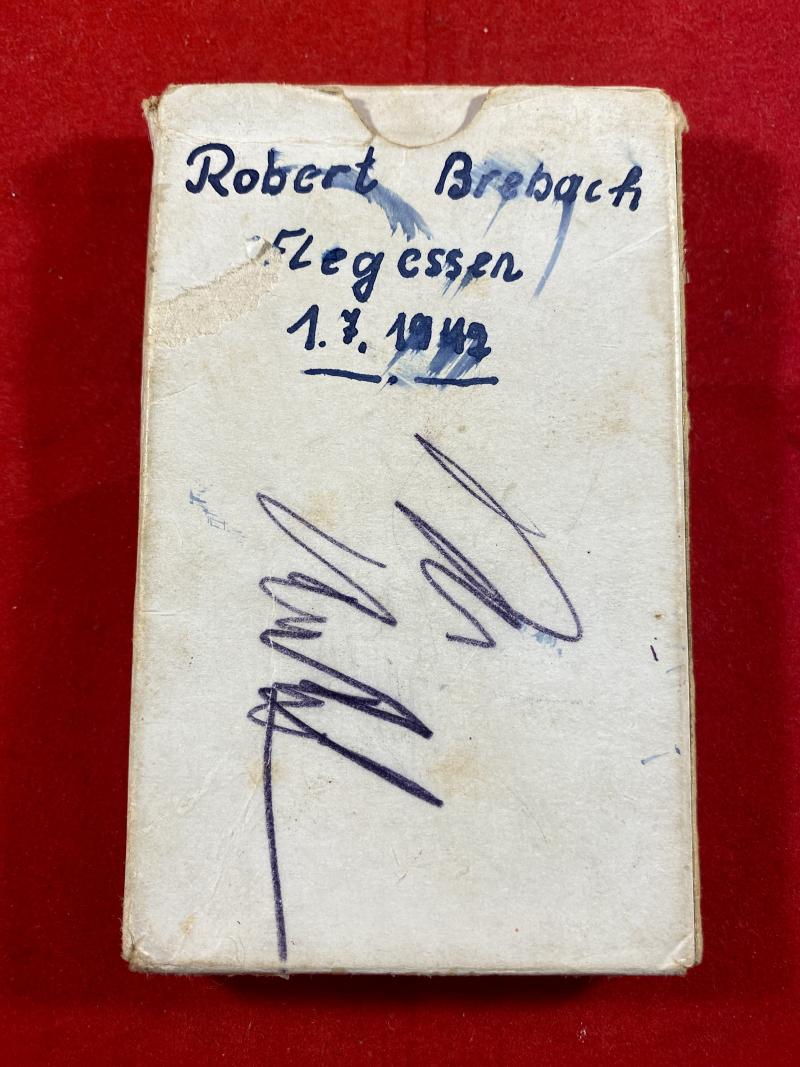 Robert Brebach
Flegessen
1.7.1942